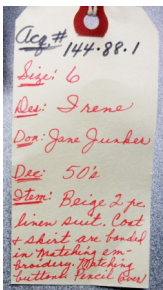 Acq.# 144.88.1
Size: 6
Des: Irene
Don: Jane Junker
Dec: 50's
Item: Beige 2 pc.
linen suit. Coat
& skirt are banded
in matching em-
broidery. Matching
buttons. Pencil (over)